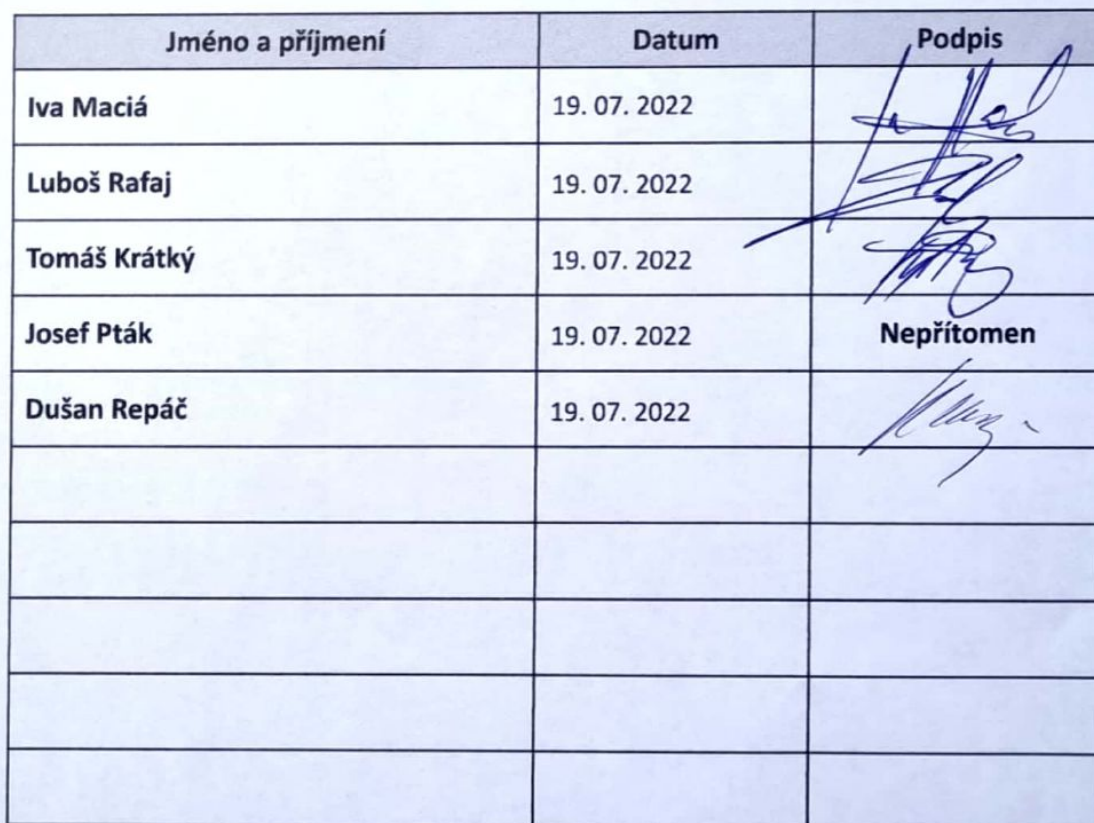 Jméno a příjmení Datum Podpis
Iva Maciá 19. 07. 2022
Luboš Rafaj 19. 07. 2022
Tomáš Krátký 19. 07. 2022
Josef Pták 19. 07. 2022 Nepřítomen
Dušan Repáč 19. 07. 2022